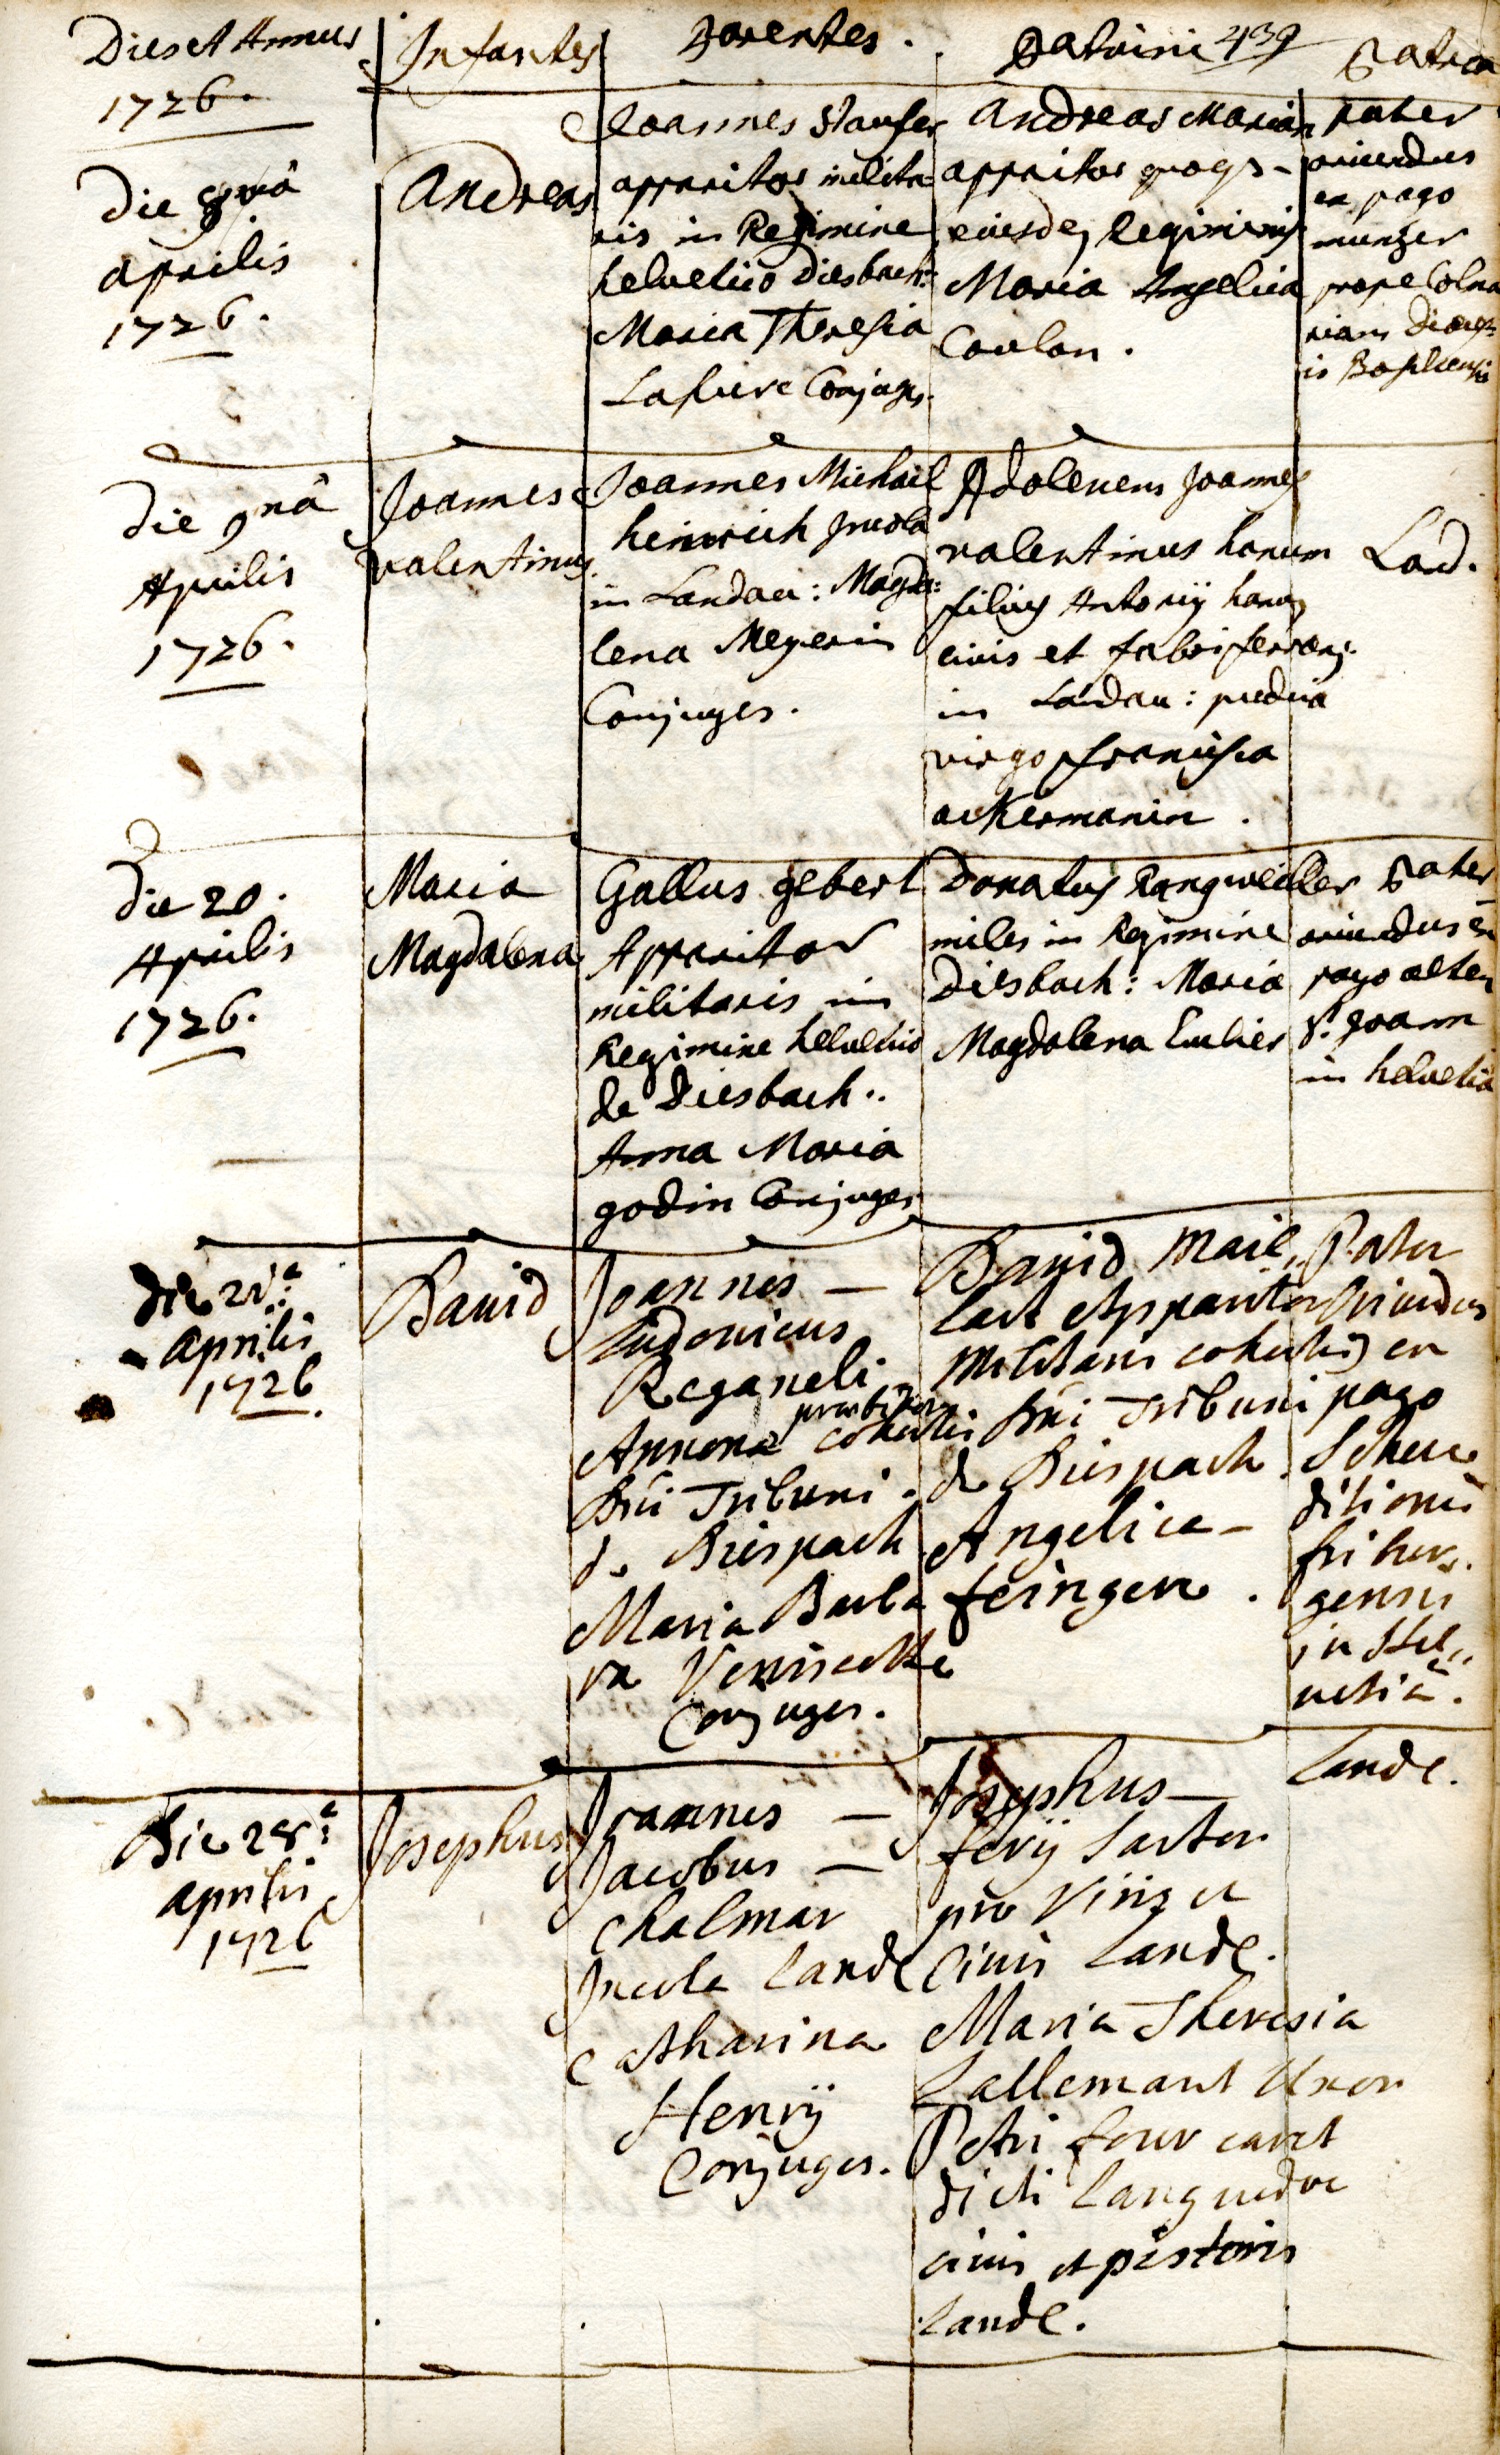 Dies et Annus
1726.
Infantes
Parentes.
Patrini
439
Patria
Die 8va
aprilis
1726.
Andreas
Joannes Staufer
apparitor milita
ris in Regimine
helvetico Diesbach:
Maria Theresia
Lafuire Conjuges.
Andreas Marian
apparitor quoq3
eiusdem Regiminis
Maria Angelica
Coulon.
pater
oriundus
ex pago
munzer
prope Colma
riam Dioeces
is Basileensis
Die 9nâ
Aprilis
1726.
Joannes
valentinus
Joannes Michael
heinrich incola
in Landau: Magda:
lena Meyerin
Conjuges.
Adolescens Joannes
valentinus hanum
filius Antonÿ hanum
civis et fabri ferrarij
in Landau: pudica
virgo francisca
ackermanin.
Land.
Die 20.
Aprilis
1726.
Maria
Magdalena
Gallus gebert
Apparitor
militaris in
Regimine helvetico
de Diesbach..
Anna Maria
godin Conjuges
Donatus Rangweiller
miles in Regimine
Diesbach: Maria
Magdalena
Pater
oriundus ex
pago alten
St. Joann
in helvetia
Die 21.a
aprilis
1726.
David
Joannes —
Ludovicus
Reganeli
Annona cohortis
Dni Tribuni
de Diespach
Maria Barba
ra
Conjuges.
David Mail„
lart Apparitor
Militaris cohortis
Dni Tribuni
de Diespach.
Angelica —
feingere.
Pater
Oriundus
ex
pago
ditionis
friburg.
gensis
in Hel„
vetiâ.
Die 28.a
aprilis
1726
Josephus
Joannes —
Jacobus —
Chalmar
Incola Landl
Catharina
Henrÿ
Conjuges.
Josephus —
ferÿ Sartor
pro Vin3 et
Civis Landl.
Maria Theresia
Lallemant Uxor
Petri four caret
dicti Languedoc
civis et pistoris
Landl.
Landl.